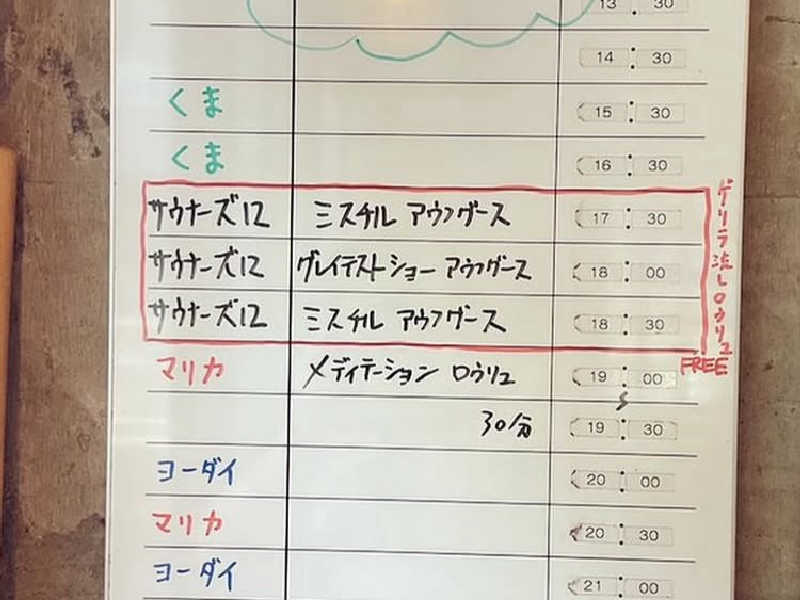 13 : 30
14 : 30
くま 15 : 30
くま 16 : 30
サウナーズ12 ミスチル アウフグース 17 : 30
サウナーズ12 グレイテストショー アウフグース 18 : 00
サウナーズ12 ミスチル アウフグース 18 : 30
マリカ メディテーション ロウリュ 19 : 00
30分 19 : 30
ヨーダイ 20 : 00
マリカ 20 : 30
ヨーダイ 21 : 00
ゲリラ
ロウリュ
FREE